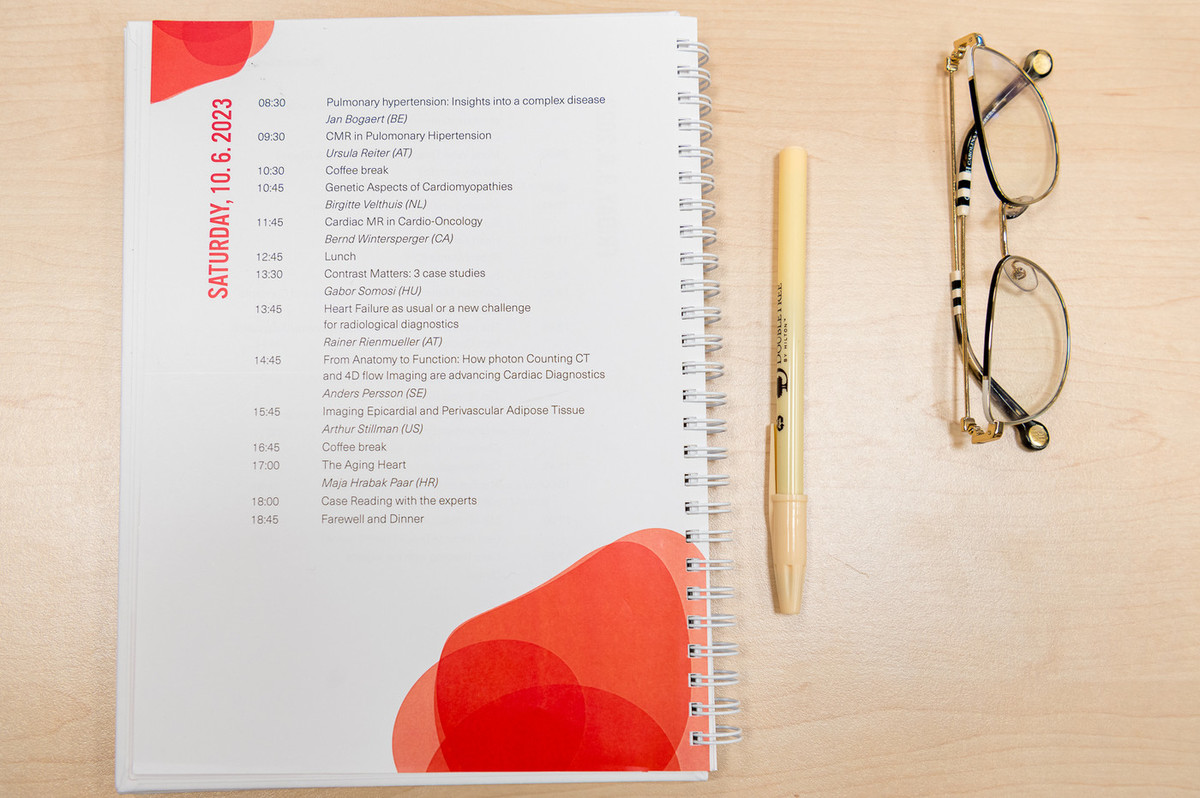 SATURDAY, 10. 6. 2023
08:30 Pulmonary hypertension: Insights into a complex disease
Jan Bogaert (BE)
09:30 CMR in Pulomonary Hipertension
Ursula Reiter (AT)
10:30 Coffee break
10:45 Genetic Aspects of Cardiomyopathies
Birgitte Velthuis (NL)
11:45 Cardiac MR in Cardio-Oncology
Bernd Wintersperger (CA)
12:45 Lunch
13:30 Contrast Matters: 3 case studies
Gabor Somosi (HU)
13:45 Heart Failure as usual or a new challenge
for radiological diagnostics
Rainer Rienmueller (AT)
14:45 From Anatomy to Function: How photon Counting CT
and 4D flow Imaging are advancing Cardiac Diagnostics
Anders Persson (SE)
15:45 Imaging Epicardial and Perivascular Adipose Tissue
Arthur Stillman (US)
16:45 Coffee break
17:00 The Aging Heart
Maja Hrabak Paar (HR)
18:00 Case Reading with the experts
18:45 Farewell and Dinner
DOUBLETREE
BY HILTON™